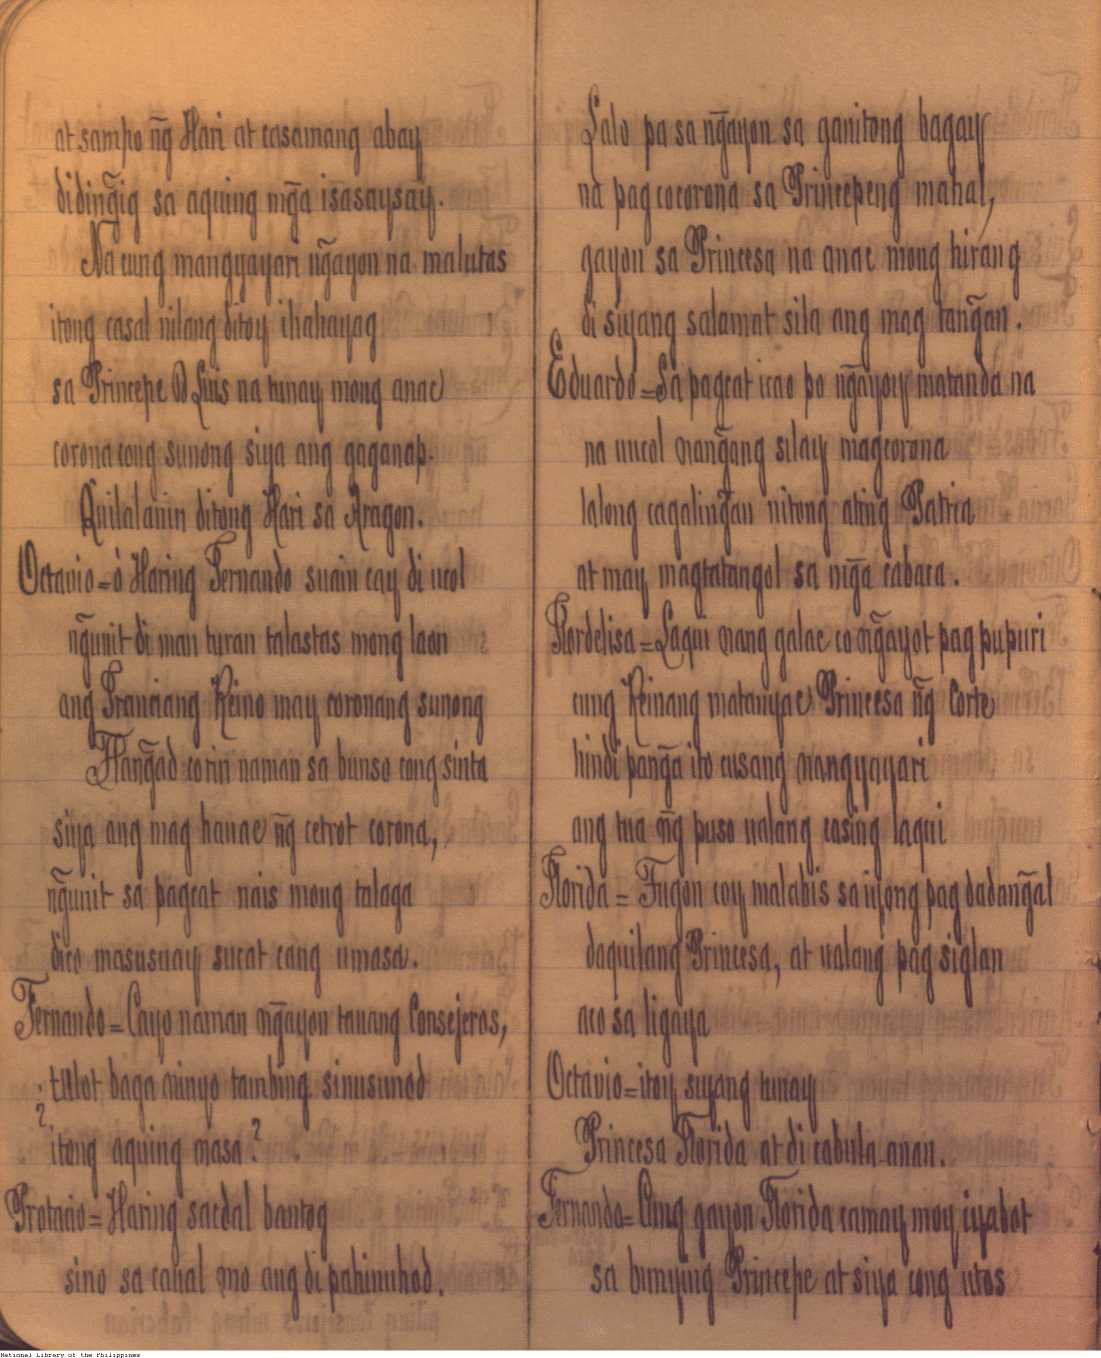 at sampo n͠g Hari at casamang abay
didin͠gig sa aquing mg̃a isasaysay.
Na cung mangyayari n͠gayon na malutas
itong casal nilang ditoy ihahayag
sa Principe D Luis na tunay mong anac
corona cong sunong siya ang gaganap.
Quilalanin ditong Hari sa Aragon.
Octavio = ó Haring Fernando suain cay di ucol
n͠gunit di man turan talastas mong laon
ang Franciang Reino may coronang sunong
Han͠gad co rin naman sa bunso cong sinta
siya ang mag hauac n͠g cetrot corona,
n͠gunit sa pagcat nais mong talaga
dico masusuay sucat cang umasa.
Fernando = Cayo naman n͠gayon tauang Consejeros,
¿ tutot baga ninyo tambing sinusunod
itong aquing masa?
Protacio = Haring sacdal bantog
sino sa cahal mo ang di pahinuhod.
Lalo pa sa n͠gayon sa ganitong bagay
na pag cocorona sa Princepeng mahal,
gayon sa Princesa na anac mong hirang
di siyang salamat sila ang mag tan͠gan.
Eduardo = Sa pagcat icao po n͠gayoy matanda na
na uucol nan͠gang silay magcorona
lalong cagalin͠gan nitong ating Patria
at may magtatangol sa mg̃a cabaca.
Flordelisa = Laqui nang galac co n͠gayot pag pupuri
cung Reinang matauyac Princesa n͠g Corte
hindi pan͠ga ito cusang mangyayari
ang tua n͠g puso ualang casing laqui
Florida = Tugon coy malabis sa iyong pag dadan͠gal
daquilang Princesa, at ualang pag siglan
aco sa ligaya
Octavio = itoy siyang tunay
Princesa Florida at di cabula-anan.
Fernando = Cung gayon Florida camay moy iyabot
sa bunying Principe at siya cong utos
National Library of the Philippines